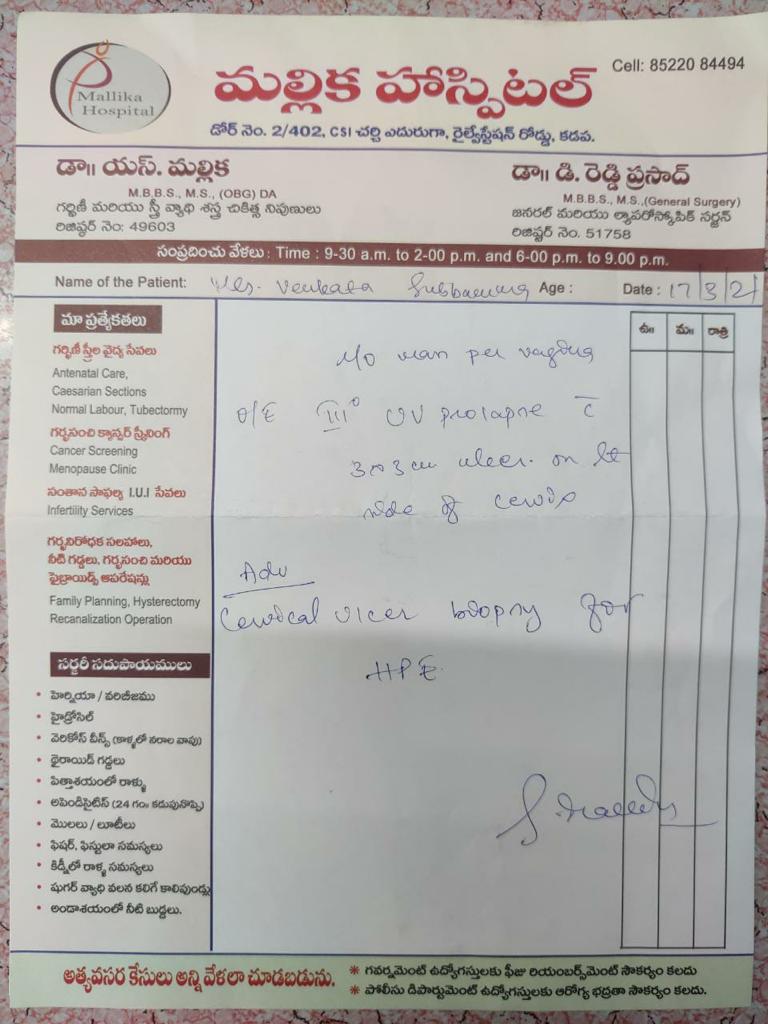 Mallika
Hospital
మల్లిక హాస్పిటల్
Cell: 85220 84494
డోర్ నెం. 2/402, CSI చర్చి ఎదురుగా, రైల్వేస్టేషన్ రోడ్డు, కడప.
డా॥ యస్. మల్లిక
M.B.B.S., M.S., (OBG) DA
గర్భిణీ మరియు స్త్రీ వ్యాధి శస్త్ర చికిత్స నిపుణులు
రిజిష్టర్ నెం: 49603
డా॥ డి. రెడ్డి ప్రసాద్
M.B.B.S., M.S.,(General Surgery)
జనరల్ మరియు ల్యాపరోస్కోపిక్ సర్జన్
రిజిష్టర్ నెం. 51758
సంప్రదించు వేళలు : Time : 9-30 a.m. to 2-00 p.m. and 6-00 p.m. to 9.00 p.m.
Name of the Patient: Mrs. Venkata Subbamma Age : Date : 17/3/21
మా ప్రత్యేకతలు
గర్భిణీ స్త్రీల వైద్య సేవలు
Antenatal Care,
Caesarian Sections
Normal Labour, Tubectormy
గర్భసంచి క్యాన్సర్ స్క్రీనింగ్
Cancer Screening
Menopause Clinic
సంతాన సాఫల్య I.U.I సేవలు
Infertility Services
గర్భనిరోధక సలహాలు,
నీటి గడ్డలు, గర్భసంచి మరియు
ఫైబ్రాయిడ్స్ ఆపరేషన్లు
Family Planning, Hysterectomy
Recanalization Operation
సర్జరీ సదుపాయములు
• హెర్నియా / వరిబీజము
• హైడ్రోసిల్
• వెరికోస్ వీన్స్ (కాళ్ళలో నరాల వాపు)
• థైరాయిడ్ గడ్డలు
• పిత్తాశయంలో రాళ్ళు
• అపెండిసైటిస్ (24 గం॥ కడుపునొప్పి)
• మొలలు / లూటీలు
• ఫిషర్, ఫిస్టులా సమస్యలు
• కిడ్నీలో రాళ్ళ సమస్యలు
• షుగర్ వ్యాధి వలన కలిగే కాలిపుండ్లు
• అండాశయంలో నీటి బుడ్డలు.
ఉ॥ మ॥ రాత్రి
H/O mass per vagina
O/E III° UV prolapse c̄
3x3 cm ulcer on lt
side of cervix
Adv
Cervical ulcer biopsy for
HPE
అత్యవసర కేసులు అన్ని వేళలా చూడబడును.
* గవర్నమెంట్ ఉద్యోగస్తులకు ఫీజు రియంబర్స్‌మెంట్ సౌకర్యం కలదు
* పోలీసు డిపార్టుమెంట్ ఉద్యోగస్తులకు ఆరోగ్య భద్రతా సౌకర్యం కలదు.